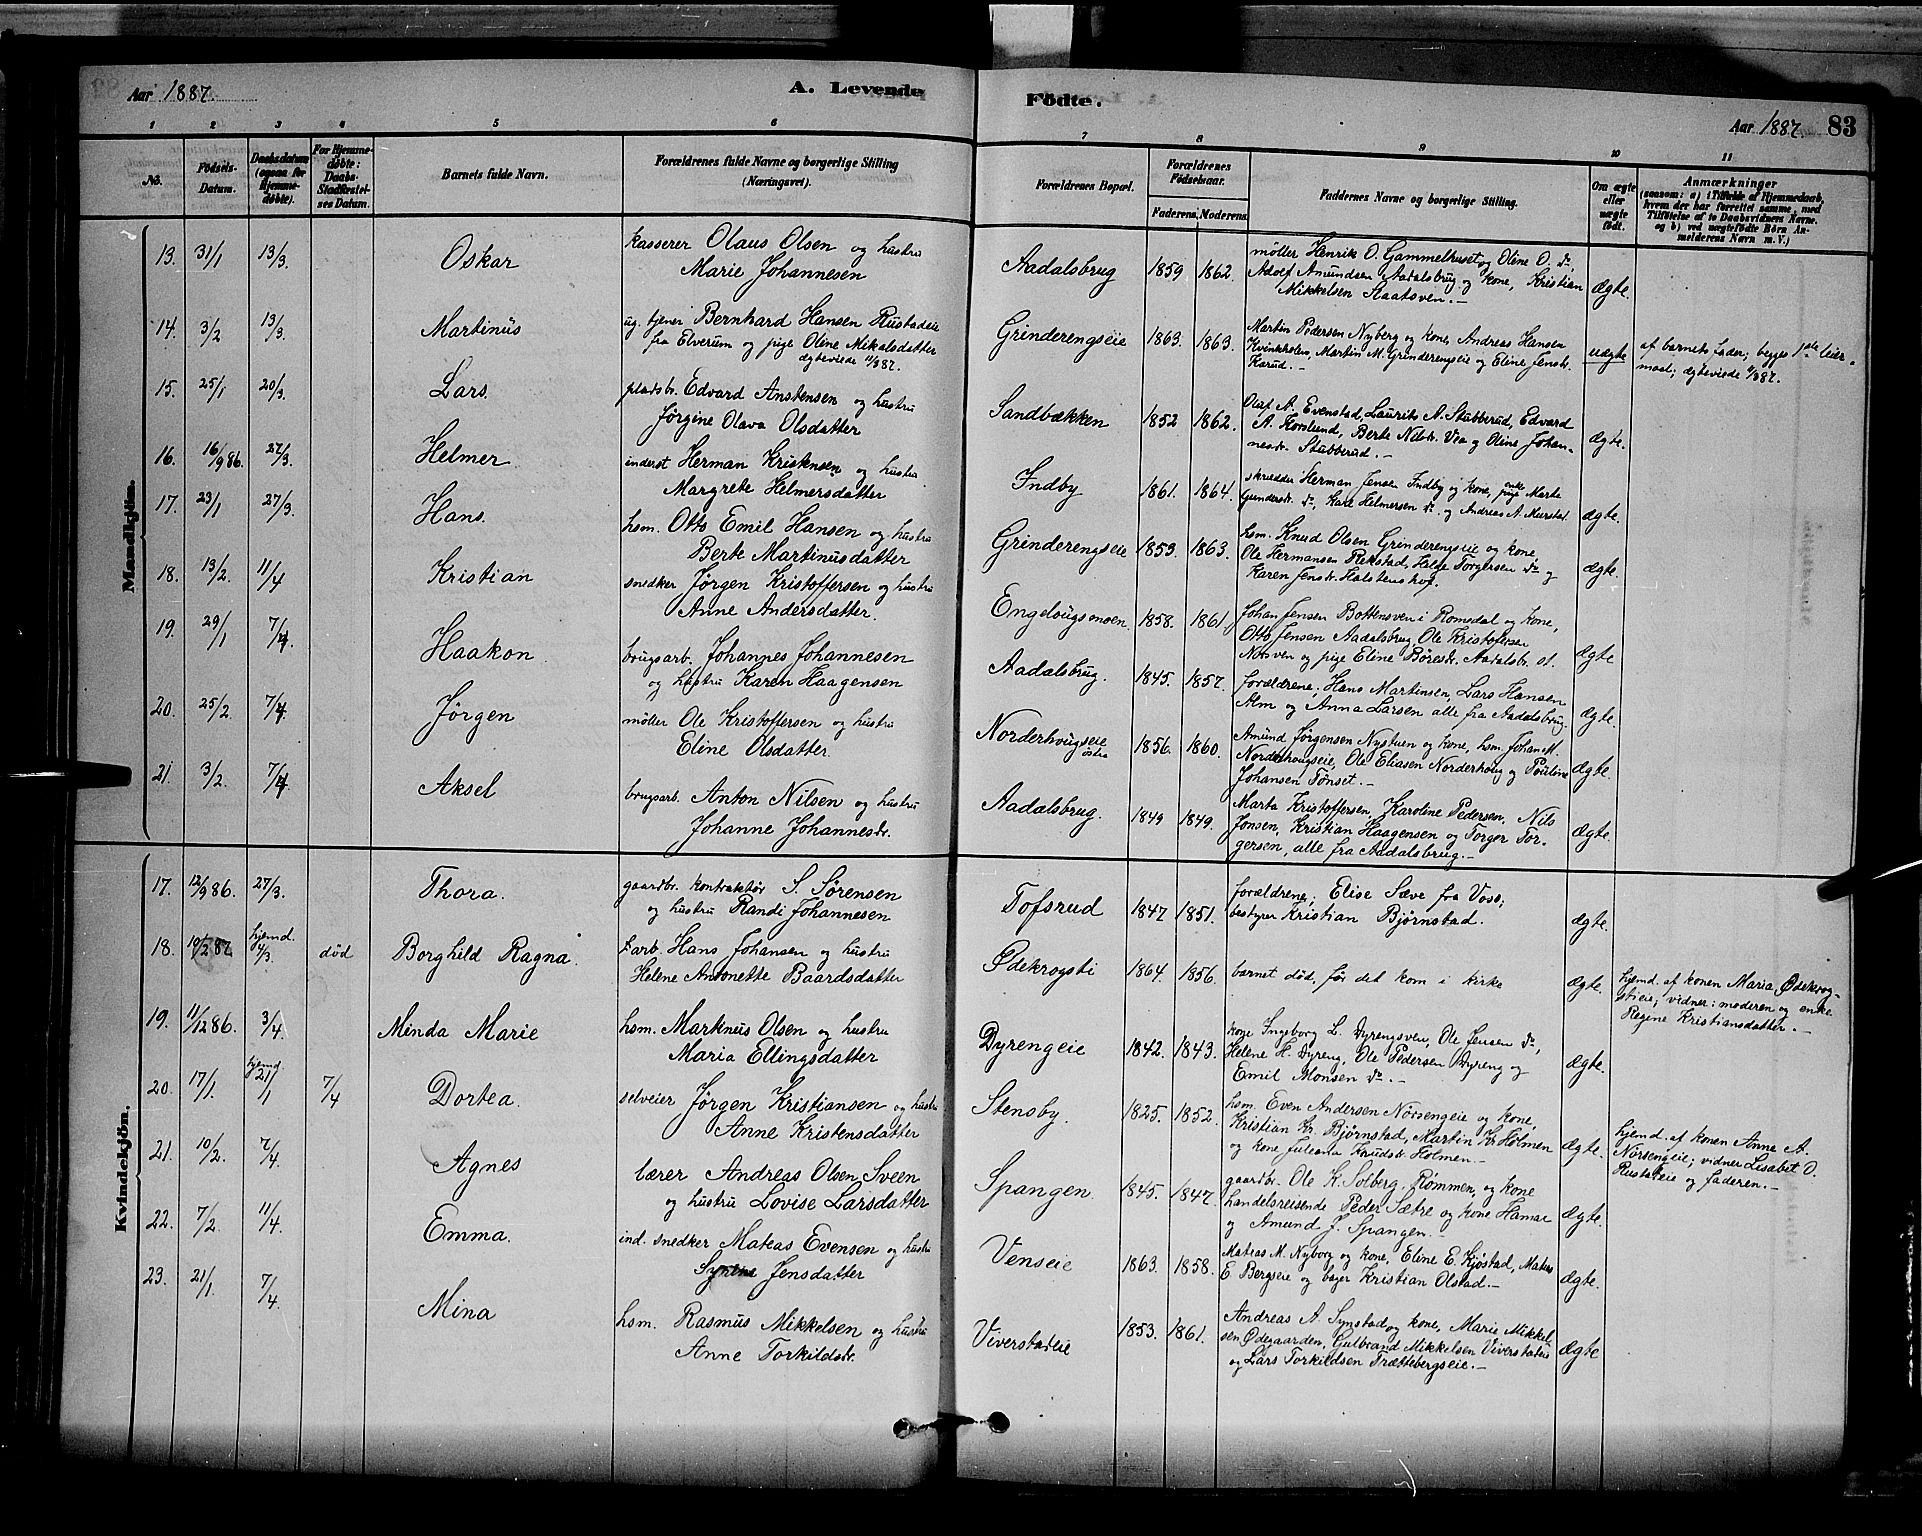 Aar 1887.
A. Levende
Födte.
Aar 1887. 83
1 2 3 4 5 6 7 8 9 10 11
No.
Födsels-Datum.
Daabsdatum (ogsaa for Hjemmedøbte).
For Hjemmedøbte: Daabs-Stadfæstelses Datum.
Barnets fulde Navn.
Forældrenes fulde Navne og borgerlige Stilling (Næringsvei).
Forældrenes Bopæl.
Forældrenes Fødselsaar.
Faderens. Moderens.
Faddernes Navne og borgerlige Stilling.
Om ægte eller uægte født.
Anmærkninger
(saasom: a) i Tilfælde af Hjemmedaab, hvem der har forrettet samme, med Tilføielse af to Daabsvidners Navne. og b) ved uægtefødte Børn Anmelderens Navn m. V.)
Mandkjön.
13. 31/1 13/3. Oskar kasserer Olaus Olsen og hustru
Marie Johannesen
Aadalsbrug 1859 1862. møller Henrik O. Gammelhuset og Oline O. do,
Adolf Amundsen Aadalsbrug og kone, Kristian
Mikkelsen Staatsven.- Ægte.
14. 3/2 13/3. Martinus ug. tjener Bernhard Hansen Rustadeie
fra Elverum og pige Oline Mikalsdatter
ægteviede 11/3 87.
Grinderengseie 1863. 1863. Martin Pedersen Nyberg og kone, Andreas Hansen
Kvinkholen, Martin M. Grinderengseie og Eline Jensdr.
Karud.- uægte af barnets fader; begges 1ste leier-
maal; ægteviede 11/3 87.
15. 25/1 20/3. Lars. pladsbr. Edvard Anstensen og hustru
Jørgine Olava Olsdatter
Sandbækken 1852 1862. Olaf A. Evenstad, Laurits A. Stubberud, Edvard
A. Korslund, Berte Nilsdr. Vea og Oline Johan-
nesdr. Stubberud.- Ægte.
16. 16/9 86. 27/3. Helmer inderst Herman Kristensen og hustru
Margrete Helmersdatter
Indby 1861. 1864. skrædder Herman Jensen Indby og kone, enke pige Marte
Gundersdr. do, Karl Helmersen do. og Andreas A. Murstad. Ægte.
17. 23/1 27/3. Hans. hsm. Otto Emil Hansen og hustru
Berte Martinusdatter
Grinderengseie 1853. 1863. hsm. Knud Olsen Grinderengseie og kone,
Ole Hermansen Rekstad, Helge Torgersen do og
Karen Jensdr. Halstenshof. Ægte.
18. 13/2. 11/4 Kristian snedker Jørgen Kristoffersen og hustru
Anne Andersdatter.
Engelougsmoen. 1858. 1861. Johan Jensen Bottensven i Romedal og kone,
Otto Jensen Aadalsbrug, Ole Kristofersen
Norsven og pige Eline Børesdr. Aadalsbr. st. Ægte
19. 29/1 7/4. Haakon brugsarb. Johannes Johannesen
og hustru Karen Haagensen
Aadalsbrug. 1845. 1857. forældrene, Hans Martinsen, Lars Hansen
Alm og Anna Larsen alle fra Aadalsbrug. Ægte.
20. 25/2. 7/4. Jørgen møller Ole Kristoffersen og hustru
Eline Olsdatter.
Norderhougseie østre 1856. 1860. Amund Jørgensen Nystuen og kone, hsm. Johan M.
Norderhougseie, Ole Eliasen Norderhoug og Pouline
Johansen Tønset.- Ægte.
21. 3/2. 7/4 Aksel brugsarb. Anton Nilsen og hustru
Johanne Johannesdr.
Aadalsbrug. 1849 1849. Marta Kristoffersen, Karoline Pedersen, Nils
Jonsen, Kristian Haagensen og Torger Tor-
gersen, alle fra Aadalsbrug.- Ægte.
Kvindekjön.
17. 12/9 86. 27/3. Thora. gaardbr. kontraktør S. Sørensen
og hustru Randi Johannesen
Tofsrud 1847 1851. forældrene; Elise Sæve fra Voss;
bestyrer Kristian Bjørnstad. Ægte.
18. 10/2 87. hjemd. 4/3. død Borghild Ragna. arb. Hans Johansen og hustru
Helene Antonette Baardsdatter
Ødekrogsti 1864 1856. barnet død, før det kom i kirke Ægte. hjemd. af konen Maria Ødekrog-
stieie; vidner: moderen og enke
Regine Kristiansdatter.-
19. 11/12 86. 3/4. Minda Marie hsm. Martinus Olsen og hustru
Maria Ellingsdatter
Dyrengeie 1842. 1843. kone Ingeborg L. Dyrengsven, Ole Jensen do,
Helene H. Dyreng, Ole Pedersen Dyreng og
Emil Monsen do.- Ægte.
20. 17/1. hjemd. 21/1 7/4 Dortea. selveier Jørgen Kristiansen og hustru
Anne Kristensdatter
Stensby. 1825. 1852. hsm. Even Andersen Norsengeie og kone,
Kristian Kr. Bjørnstad, Martin Kr. Holmen
og kone Juleana Knudsdr. Holmen.- Ægte. hjemd. af konen Anne A.
Norsengeie; vidner Lisabet O.
Rustadeie og faderen.-
21. 10/2. 7/4. Agnes lærer Andreas Olsen Sveen
og hustru Lovise Larsdatter
Spangen. 1845. 1847. gaardbr. Ole K. Solberg, Rømmen, og kone
handelsreisende Peder Sætre og kone Hamar
og Amund J. Spangen.- Ægte.
22. 7/2. 11/4. Emma. ind. snedker Mateas Evensen og hustru
Jensdatter
Venseie 1863. 1858. Mateas M. Nyborg og kone, Eline E. Kjøstad, Mateas
E. Bergseie og bager Kristian Olstad.- Ægte.
23. 21/1. 7/4. Mina hsm. Rasmus Mikkelsen og hustru
Anne Torkildsdr.
Viverstadeie 1853. 1861. Andreas A. Synstad og kone, Marie Mikkel-
sen Ødegaarden, Gulbrand Mikkelsen Viverstadeie
og Lars Torkildsen Trættebergseie.- Ægte